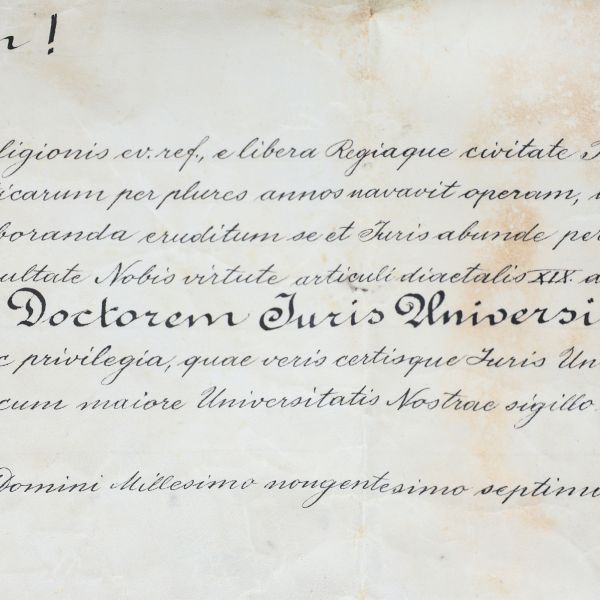 n!
ligionis ev. ref., e libera Regiaque civitate
icarum per plures annos navavit operam,
boranda eruditum se et Juris abunde per
ultate Nobis virtute articuli diaetalis XIX. a
Doctorem Juris Universi
c privilegia, quae veris certisque Juris Un
cum maiore Universitatis Nostrae sigillo
Domini Millesimo nongentesimo septimo